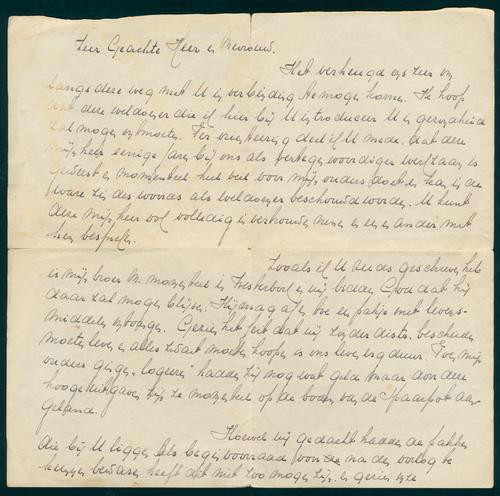 Zeer Geachte Heer en Mevrouw.
Het verheugd ons zeer om
langs deze weg met U in verbinding te mogen komen. Ik hoop
dat deze weldoener die ik hier bij U introduceer U in gezondheid
zal mogen ontmoeten. Ter orienteering deel ik U mede, dat deze
mijnheer eenige jaren bij ons als vertegenwoordiger werkzaam is
geweest en momenteel heel veel voor mijn ouders doet en kan in de
ware zin des woords als weldoener beschouwd worden. U kunt
deze mijnheer ook volledig in vertrouwen nemen en een en ander met
hem bespreken.
Zooals ik U reeds geschreven heb
is mijn broer M. momenteel in Westerbork en wij bidden God dat hij
daar zal mogen blijven. Hij mag af en toe een pakje met levens-
middelen ontvangen. Gezien het feit dat wij zonder distr. bescheiden
moeten leven en alles zwart moeten koopen is ons leven erg duur. Toen mijn
ouders gingen "logeren" hadden zij nog wat geld maar door deze
hooge uitgaven zijn ze momenteel op de bodem van de spaarpot aan-
geland.
Hoewel wij gedacht hadden de pakken
die bij U liggen als beginvoorraad voor de na den oorlog te
kunnen bewaren heeft dit niet zoo mogen zijn en gezien onze